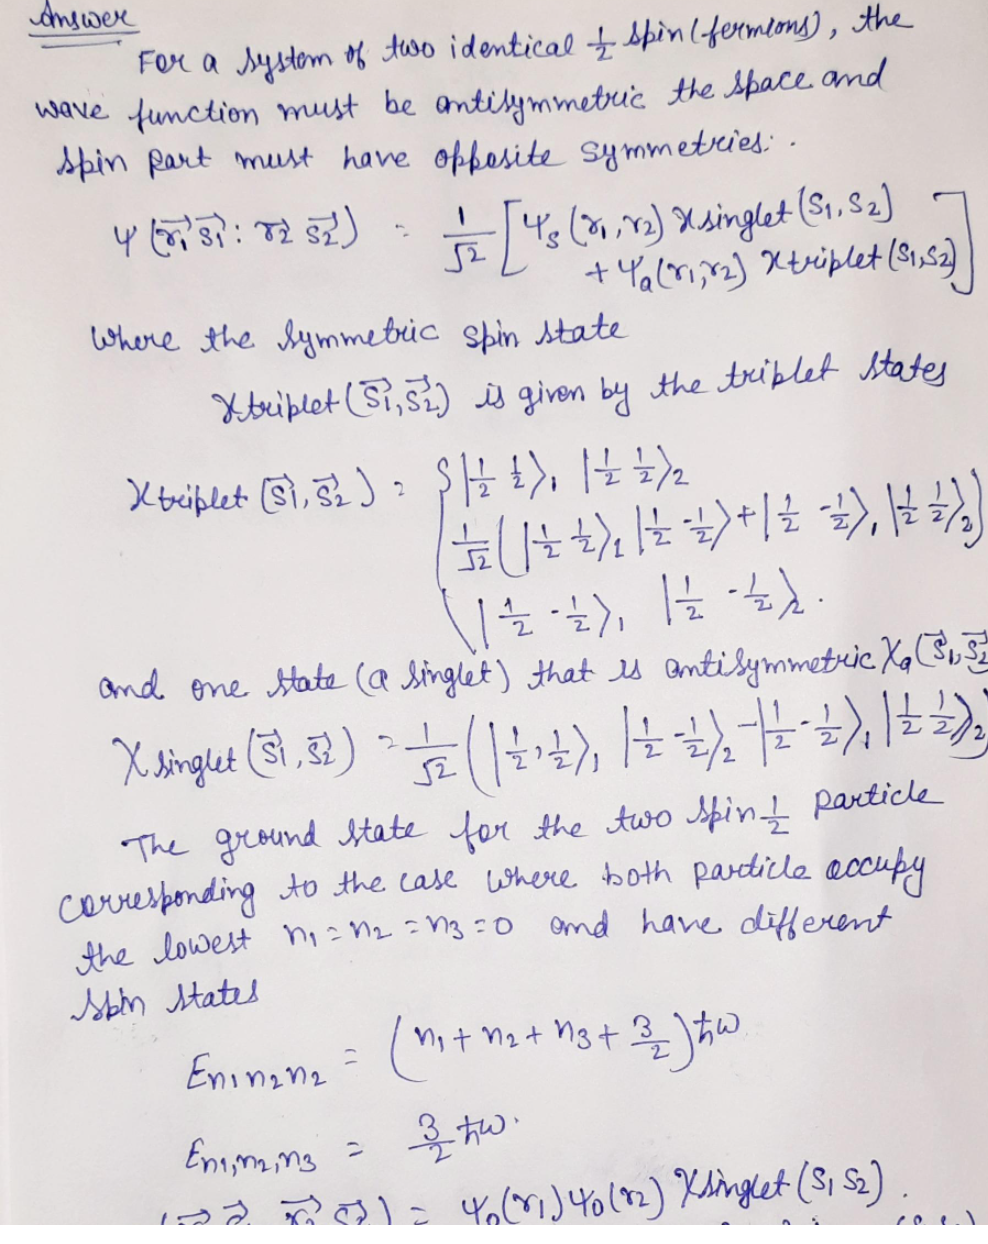 Answer
For a system of two identical 1/2 spin (fermions), the
wave function must be antisymmetric the space and
spin part must have opposite symmetries: .
Ψ(r⃗₁ s⃗₁ : r⃗₂ s⃗₂) = 1/√2 [Ψs(r₁,r₂) χsinglet(S₁,S₂)
+ Ψa(r₁,r₂) χtriplet(S₁,S₂)]
Where the symmetric spin state
χtriplet(S⃗₁,S⃗₂) is given by the triplet states
χtriplet(S⃗₁,S⃗₂) = { |1/2 1/2⟩₁ |1/2 1/2⟩₂
1/√2 (|1/2 1/2⟩₁ |1/2 -1/2⟩ + |1/2 -1/2⟩₁ |1/2 1/2⟩₂)
|1/2 -1/2⟩₁ |1/2 -1/2⟩₂.
and one state (a singlet) that is antisymmetric χa(S⃗₁,S⃗₂
χsinglet(S⃗₁,S⃗₂) = 1/√2 (|1/2,1/2⟩₁ |1/2 -1/2⟩₂ - |1/2 -1/2⟩₁ |1/2 1/2⟩₂)
The ground state for the two spin 1/2 particle
corresponding to the case where both particle occupy
the lowest n₁ = n₂ = n₃ = 0 and have different
spin states
En₁n₂n₂ = (n₁ + n₂ + n₃ + 3/2) ħω
En₁,n₂,n₃ = 3/2 ħω.
= Ψ₀(r₁) Ψ₀(r₂) χsinglet(S₁ S₂).